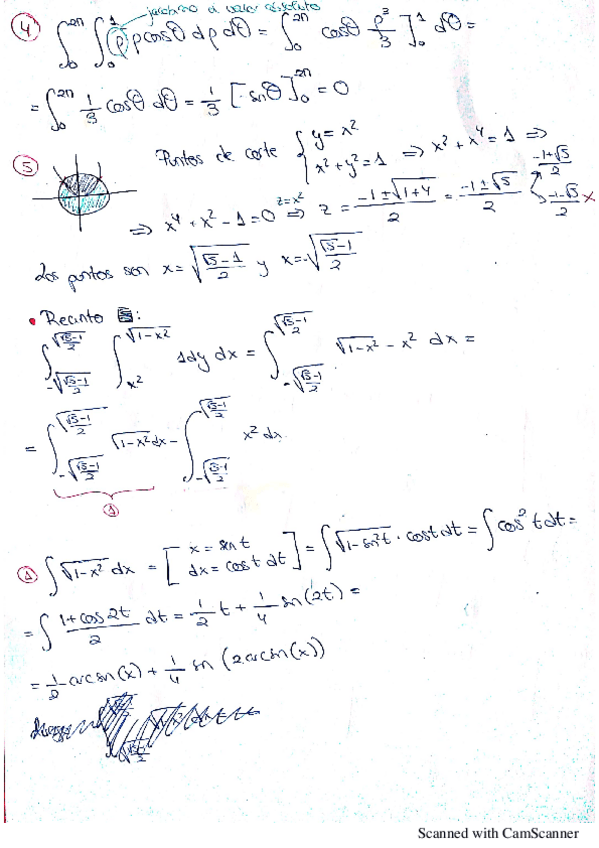 jacobiano en valor absoluto
④ ∫₀^{2π} ∫₀^1 ρ ρcosθ dρ dθ = ∫₀^{2π} cosθ ρ³/3 ]₀^1 dθ =
= ∫₀^{2π} 1/3 cosθ dθ = 1/3 [-senθ]₀^{2π} = 0
⑤ Puntos de corte { y = x² ; x² + y² = 1 ⇒ x² + x⁴ = 1 ⇒
⇒ x⁴ + x² - 1 = 0 ⇒ (z = x²) z = (-1 ± √(1+4))/2 = (-1 ± √5)/2 → (-1+√5)/2 ; (-1-√5)/2 ×
Los puntos son x = √((√5-1)/2) y x = -√((√5-1)/2)
• Recinto :
∫_{-√((√5-1)/2)}^{√((√5-1)/2)} ∫_{x²}^{√(1-x²)} 1 dy dx = ∫_{-√((√5-1)/2)}^{√((√5-1)/2)} √(1-x²) - x² dx =
= ∫_{-√((√5-1)/2)}^{√((√5-1)/2)} √(1-x²) dx - ∫_{-√((√5-1)/2)}^{√((√5-1)/2)} x² dx
①
① ∫ √(1-x²) dx = [ x = sen t ; dx = cos t dt ] = ∫ √(1-sen²t) · cos t dt = ∫ cos² t dt =
= ∫ (1+cos 2t)/2 dt = 1/2 t + 1/4 sen(2t) =
= 1/2 arcsen(x) + 1/4 sen (2 arcsen(x))
Scanned with CamScanner